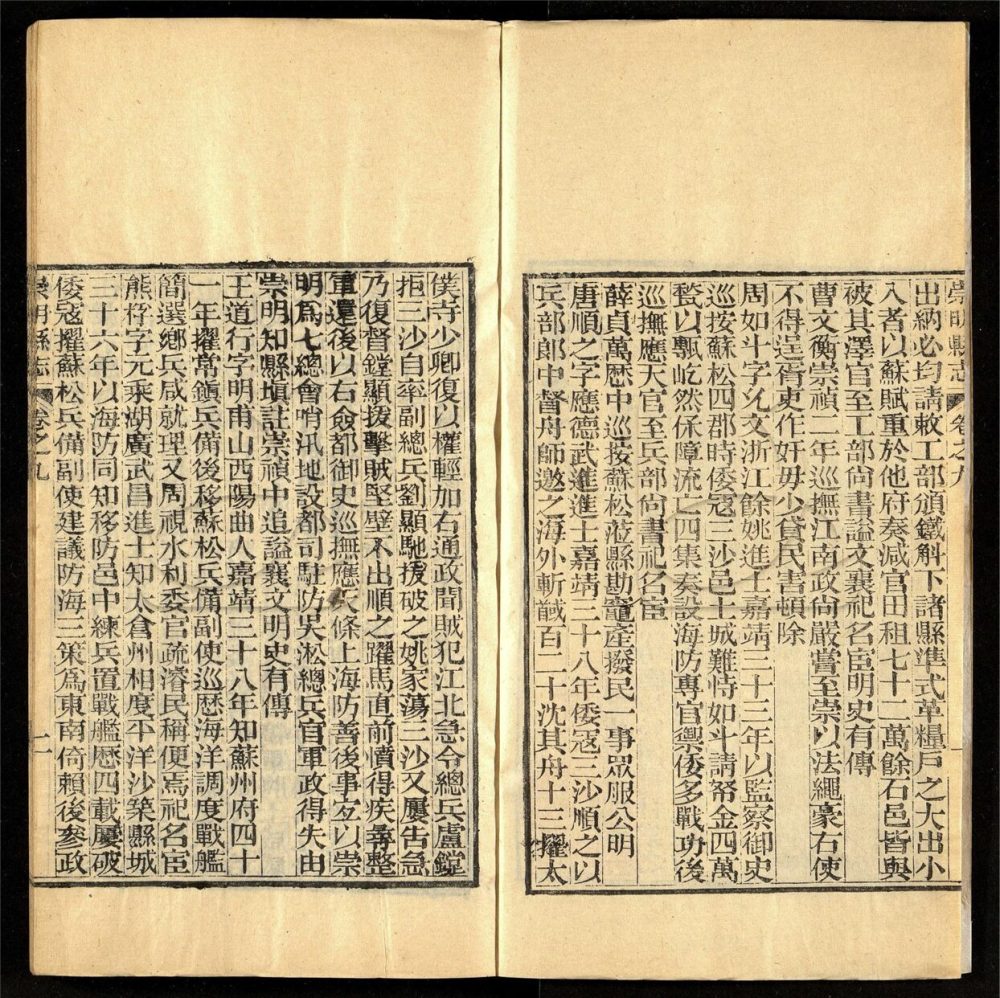 崇明縣志 卷之九
出納必均請敕工部頒鐵斛下諸縣準式革糧戶之大出小
入者以蘇賦重於他府奏減官田租七十二萬餘石邑皆與
被其澤官至工部尚書謚文襄祀名臣明史有傳
曹文衡崇禎二年巡撫江南政尚嚴嘗至崇以法繩豪右使
不得逞胥吏作奸毋少貸民害頓除
周如斗字允文浙江餘姚進士嘉靖三十三年以監察御史
巡按蘇松四郡時倭寇三沙邑土城難恃如斗請帑金四萬
甃以甎屹然保障流亡四集奏設海防專官禦倭多戰功後
巡撫應天官至兵部尚書祀名臣
薛貞萬歷中巡按蘇松蒞縣勘竈產撥民一事眾服公明
唐順之字應德武進進士嘉靖三十八年倭寇三沙順之以
兵部郎中督舟師邀之海外斬馘百二十沈其舟十三擢太
僕寺少卿復以權輕加右通政聞賊犯江北急令總兵盧鏜
拒三沙自率副總兵劉顯馳援破之姚家蕩三沙又屢告急
乃復督鏜顯援擊賊堅壁不出順之躍馬直前憤得疾尋整
軍還後以右僉都御史巡撫應天條上海防善後事宜以崇
明爲七總會哨汛地設都司駐防吳淞總兵官軍政得失由
崇明知縣塡註崇禎中追謚襄文明史有傳
王道行字明甫山西陽曲人嘉靖三十八年知蘇州府四十
一年擢常鎮兵備後移蘇松兵備副使巡歷海洋調度戰艦
簡選鄉兵咸就理又周視水利委官疏濬民稱便焉祀名臣
熊桴字元乘湖廣武昌進士知太倉州相度平洋沙築縣城
三十六年以海防同知移防邑中練兵置戰艦歷四載屢破
倭寇擢蘇松兵備副使建議防海三策爲東南倚賴後參政
崇明縣志 卷之九 二